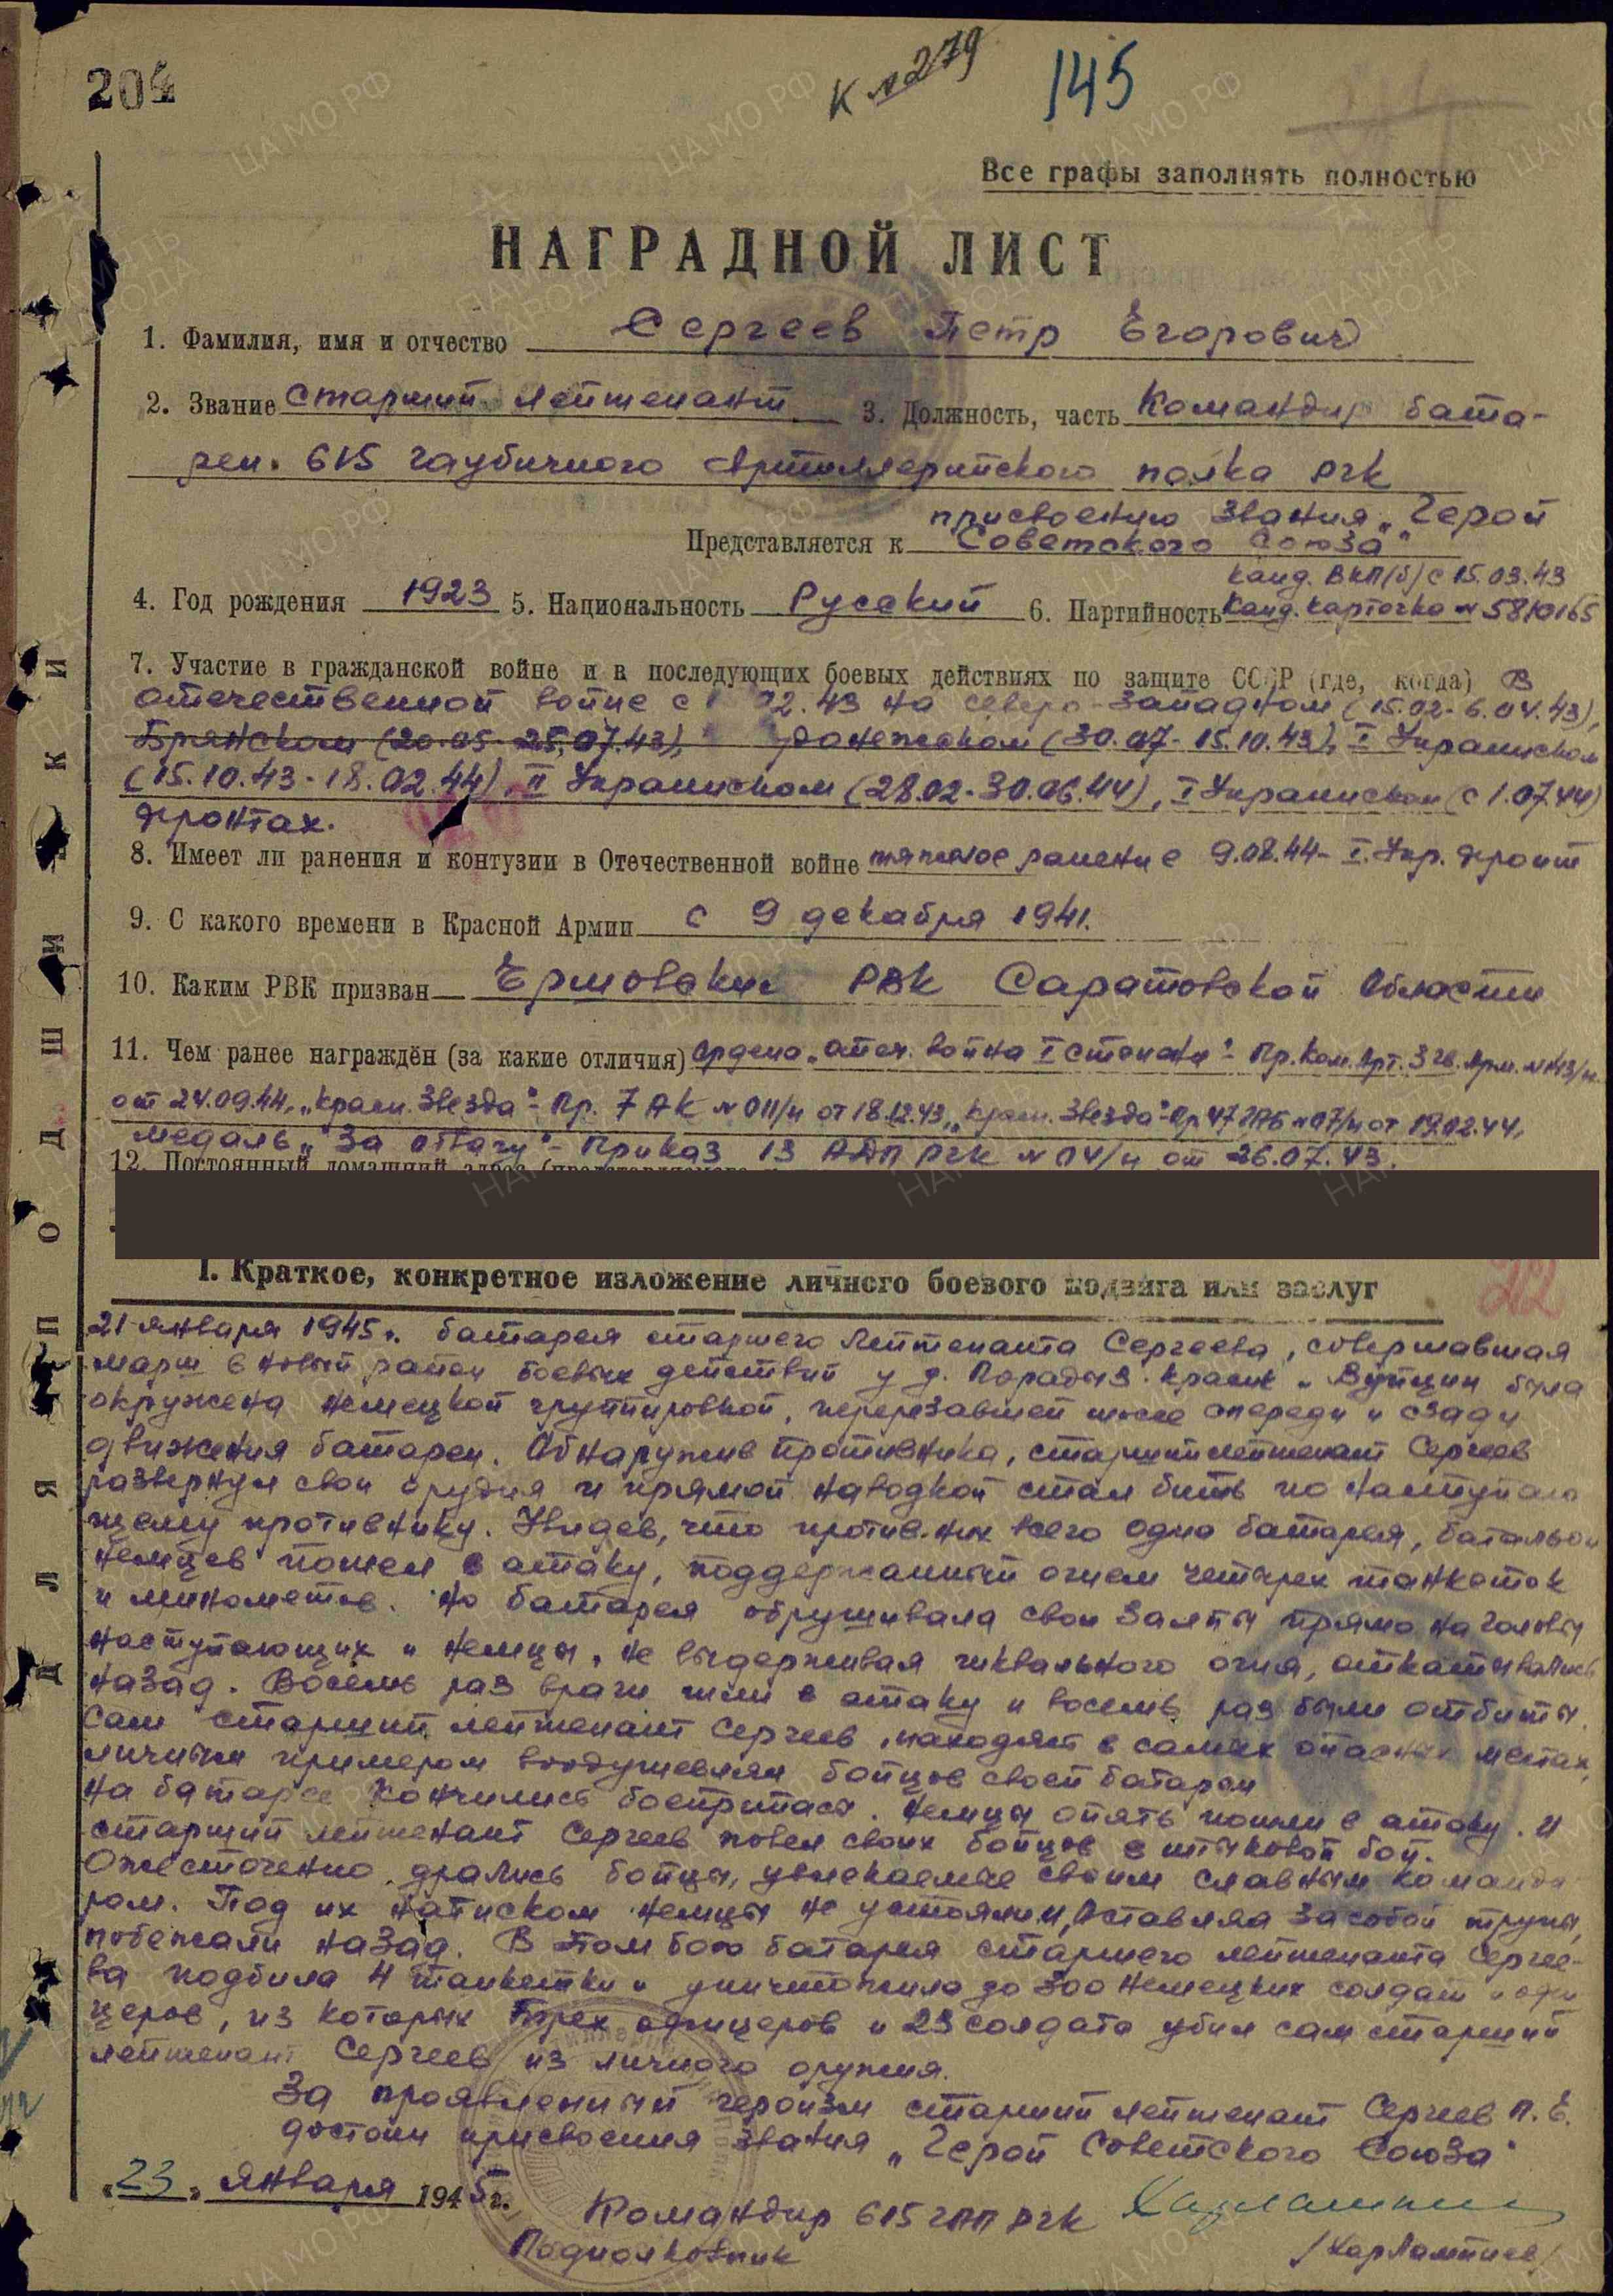 204
К № 279
145
Все графы заполнять полностью
НАГРАДНОЙ ЛИСТ
1. Фамилия, имя и отчество Сергеев Петр Егорович
2. Звание Старший лейтенант 3. Должность, часть Командир бата-
реи. 615 гаубичного Артиллерийского полка РГК
присвоению звания „Герой
Представляется к Советского Союза"
канд. ВКП(б) с 15.03.43
4. Год рождения 1923 5. Национальность Русский 6. Партийность Канд. карточка № 5810165
7. Участие в гражданской войне и в последующих боевых действиях по защите СССР (где, когда) В
отечественной войне с 02.43 на Северо-Западном (15.02-6.04.43),
Брянском (20.05-25.07.43), (30.07-15.10.43), I Украинском
(15.10.43-18.02.44), II Украинском (28.02-30.06.44), I Украинском (с 1.07.44)
фронтах.
8. Имеет ли ранения и контузии в Отечественной войне тяжелое ранение 9.08.44 - I. Укр. фронт
9. С какого времени в Красной Армии с 9 декабря 1941.
10. Каким РВК призван РВК Саратовской области
11. Чем ранее награждён (за какие отличия) Ордена „Отеч. война I степени" - Пр. Ком. Арт. 3 гв. Арм.
от 24.09.44, „Красн. Звезда" - Пр. 7 АК № 011/н от 18.12.43, „Красн. Звезда" - Пр. 47 № 07/н от 19.02.44,
медаль „За отвагу" - Приказ 13 АДП РГК № 04/н от 26.07.43.
12. Постоянный домашний адрес
I. Краткое, конкретное изложение личного боевого подвига или заслуг
22
21 января 1945 г. батарея старшего лейтенанта Сергеева, совершавшая
марш в новый район боевых действий у д. Порадыз. Красик „ была
окружена немецкой группировкой, перерезавшей шоссе спереди и сзади
движения батареи. Обнаружив противника, старший лейтенант Сергеев
развернул свои орудия и прямой наводкой стал бить по наступаю
щему противнику. Увидев, что противник всего одна батарея, батальон
немцев пошел в атаку, поддержанный огнем четырех танкеток
и минометов. Но батарея обрушивала свои залпы прямо на головы
наступающих и немцы, не выдерживая шквального огня, откатывались
назад. Восемь раз враги шли в атаку и восемь раз были отбиты.
Сам старший лейтенант Сергеев, находясь в самых опасных местах,
личным примером воодушевлял бойцов своей батареи
На батарее кончились боеприпасы. Немцы опять пошли в атаку. И
старший лейтенант Сергеев повел своих бойцов в штыковой бой.
Ожесточенно дрались бойцы, увлекаемые своим славным команди
ром. Под их натиском немцы не устояли и, оставляя за собой трупы,
побежали назад. В этом бою батарея старшего лейтенанта Сергее-
ва подбила 4 танкетки и уничтожила до 300 немецких солдат и офи
церов, из которых трех офицеров и 23 солдата убил сам старший
лейтенант Сергеев из личного оружия.
За проявленный героизм старший лейтенант Сергеев П. Е.
достоин присвоения звания „Герой Советского Союза"
„23" января 1945 г.
Командир 615 ГАП РГК
Подполковник /Харлампиев/
ДЛЯ ПОДШИВКИ